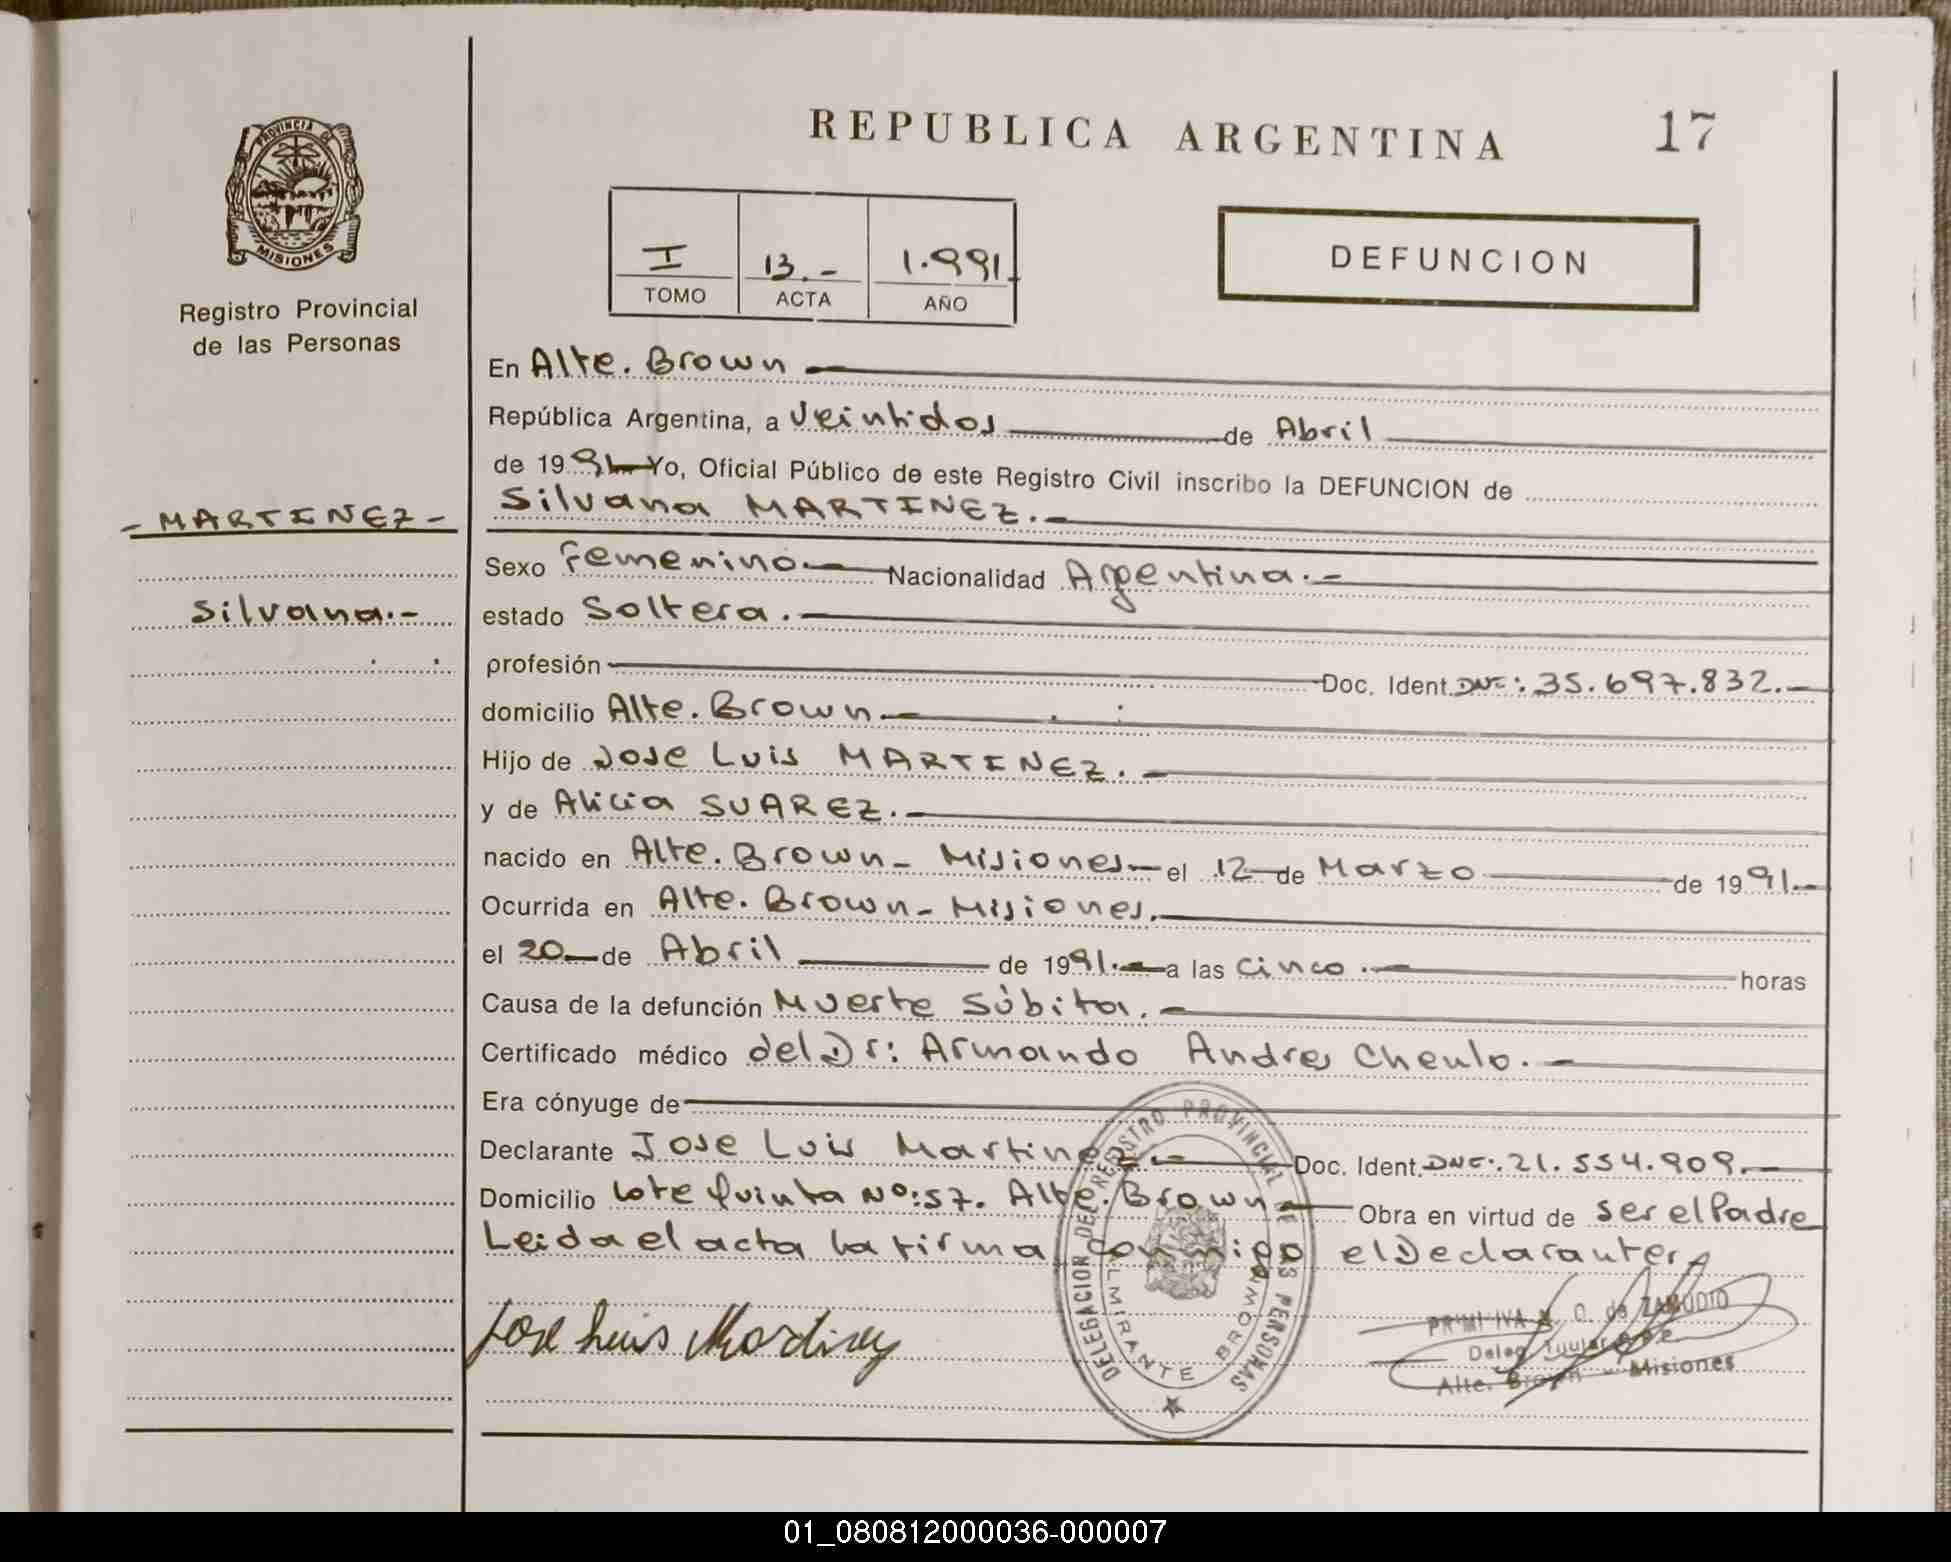 REPUBLICA ARGENTINA
17
PROVINCIA DE
MISIONES
Registro Provincial
de las Personas
I 13.- 1.991
TOMO ACTA AÑO
DEFUNCION
En Alte. Brown
República Argentina, a veintidos de Abril
de 1991 Yo, Oficial Público de este Registro Civil inscribo la DEFUNCION de
- MARTINEZ -
Silvana MARTINEZ.-
Sexo femenino.- Nacionalidad Argentina.-
Silvana.-
estado Soltera.
profesión Doc. Ident. DNI: 35.697.832.-
domicilio Alte. Brown.-
Hijo de Jose Luis MARTINEZ.-
y de Alicia SUAREZ.-
nacido en Alte. Brown - Misiones- el 12 de Marzo de 1991.-
Ocurrida en Alte. Brown - Misiones.
el 20 de Abril de 1991.- a las cinco.- horas
Causa de la defunción Muerte Súbita.-
Certificado médico del Dr: Armando Andres Cheulo.-
Era cónyuge de
Declarante Jose Luis Martinez.- Doc. Ident. DNI: 21.554.909.-
Domicilio lote quinta Nº:57. Alte. Brown Obra en virtud de ser el Padre
Leida el acta la firma conmigo el Declarante
DELEGACION DEL REGISTRO PROVINCIAL DE LAS PERSONAS
ALMIRANTE BROWN
Jose Luis Martinez
O. de ZAMUDIO
Deleg. Titular
Alte. Brown - Misiones
01_080812000036-000007